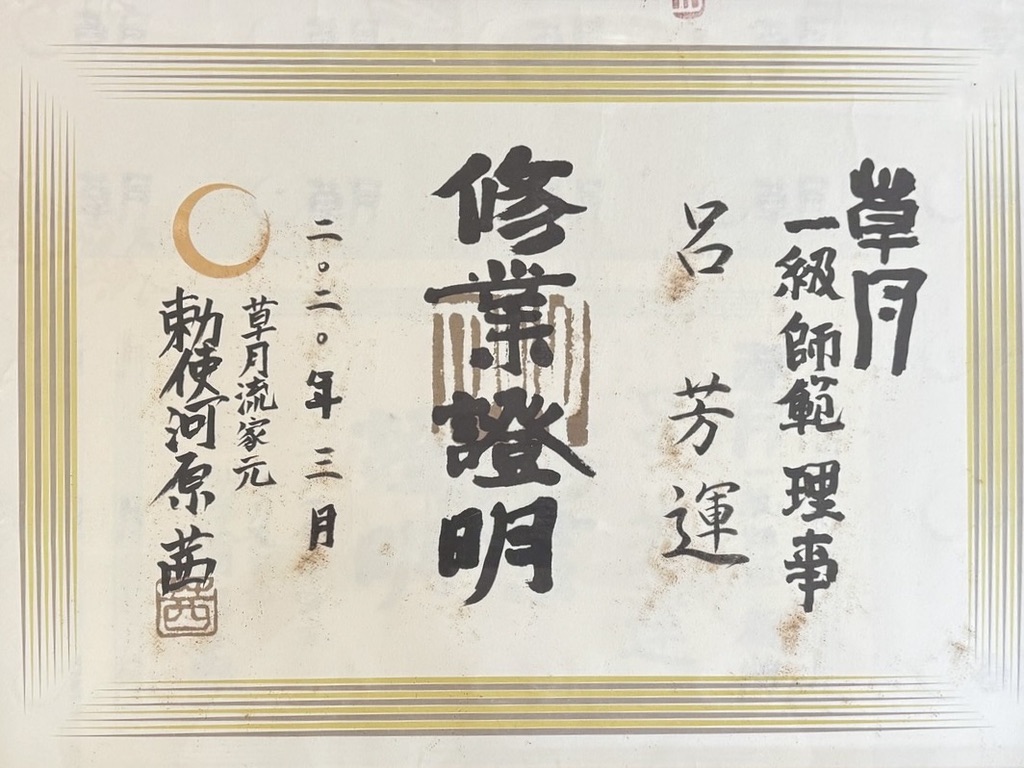 草月
一級師範 理事
呂 芳 運
修業證明
二〇二〇年 三月
草月流家元
勅使河原 茜
茜